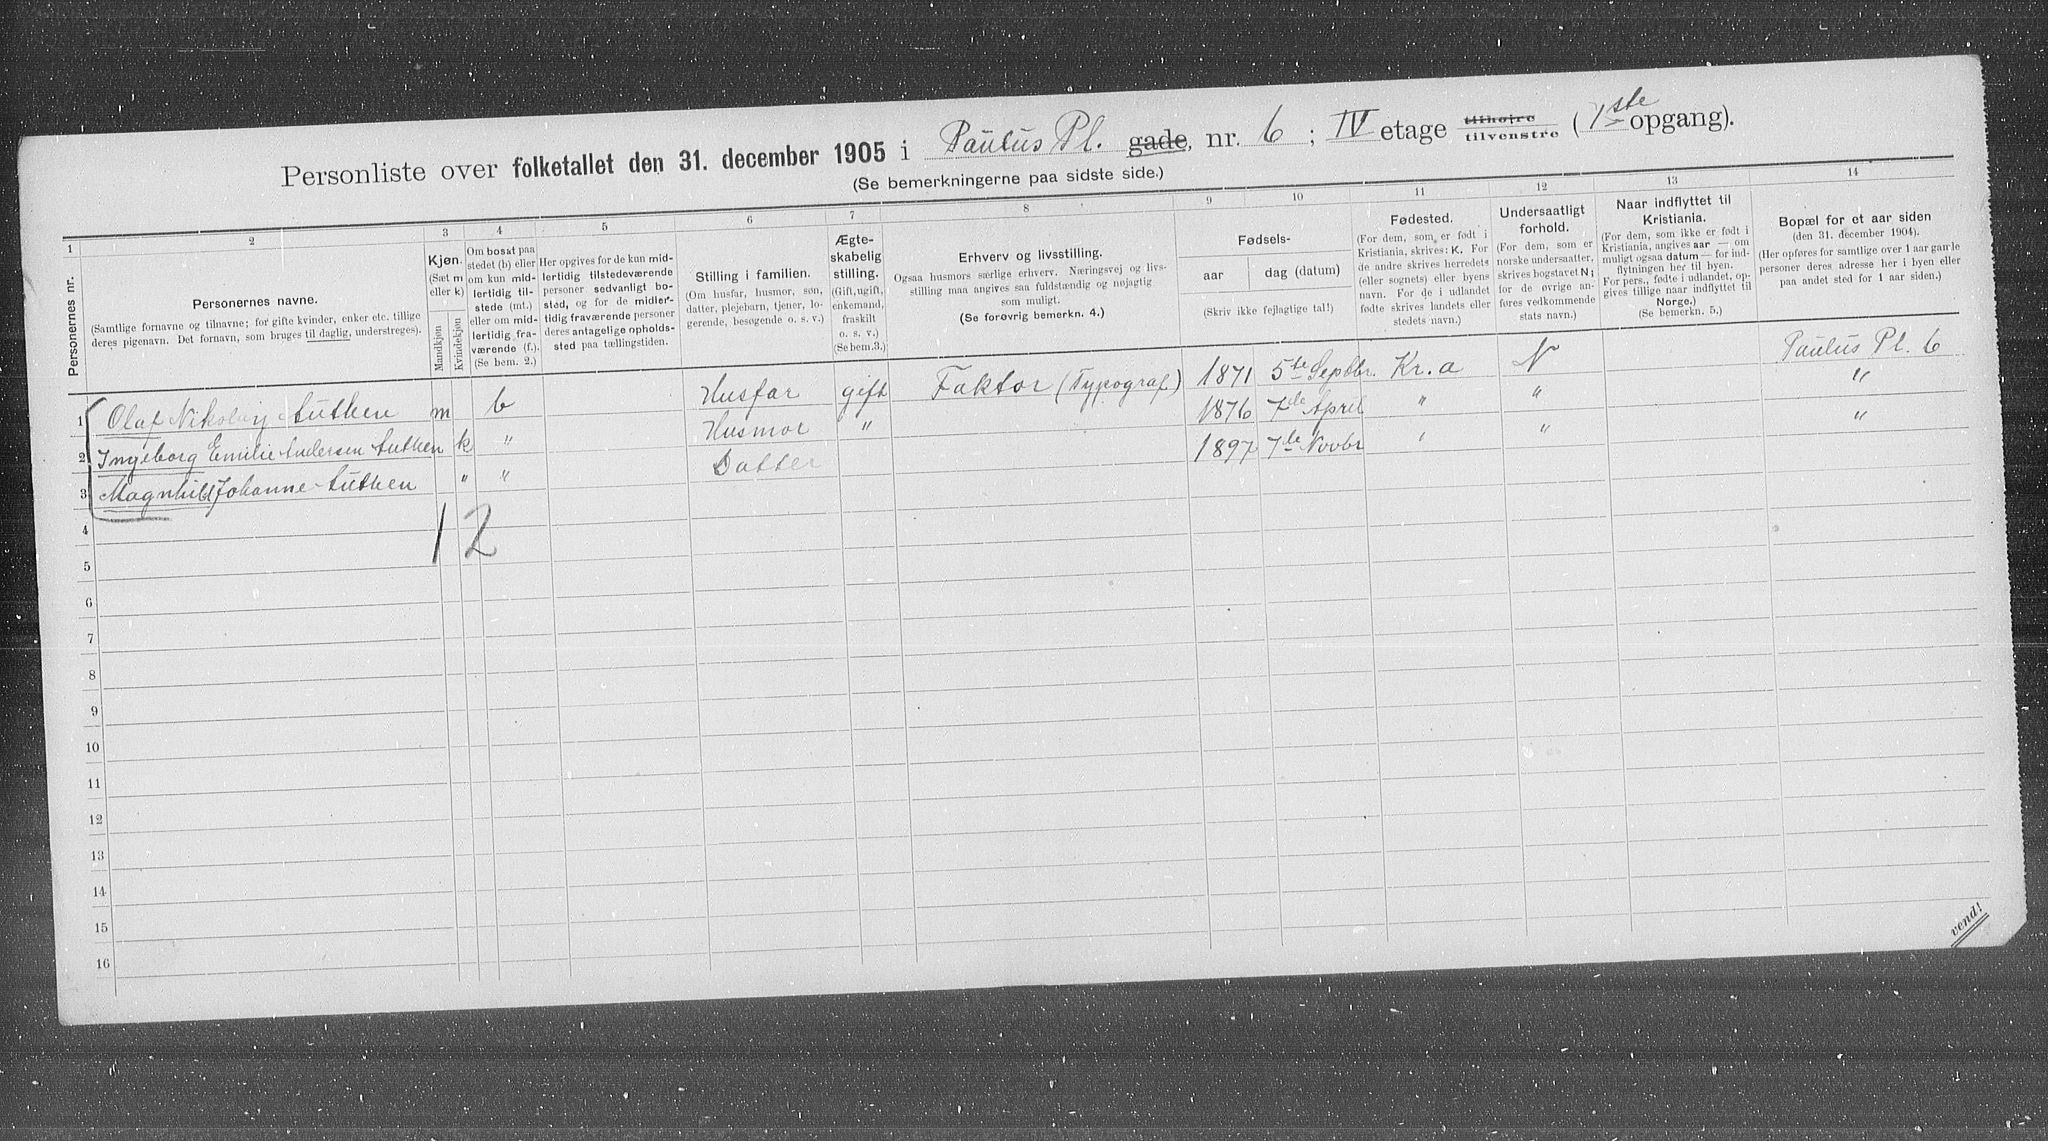 Personliste over folketallet den 31. december 1905 i Paulus Pl. gade, nr. 6 ; IV etage tilhøire tilvenstre (1ste opgang).
(Se bemerkningerne paa sidste side.)
1 2 3 4 5 6 7 8 9 10 11 12 13 14
Personernes nr.
Personernes navne.
(Samtlige fornavne og tilnavne; for gifte kvinder, enker etc. tillige
deres pigenavn. Det fornavn, som bruges til daglig, understreges).
Kjøn.
(Sæt m
eller k)
Mandkjøn
Kvindekjøn
Om bosat paa
stedet (b) eller
om kun mid-
lertidig til-
stede (mt.)
eller om mid-
lertidig fra-
værende (f.).
(Se bem. 2.)
Her opgives for de kun mid-
lertidig tilstedeværende
personer sedvanligt bo-
sted, og for de midler-
tidig fraværende personer
deres antagelige opholds-
sted paa tællingstiden.
Stilling i familien.
(Om husfar, husmor, søn,
datter, plejebarn, tjener, lo-
gerende, besøgende o. s. v.)
Ægte-
skabelig
stilling.
(Gift, ugift,
enkemand,
fraskilt
o. s. v.)
(Se bem. 3.)
Erhverv og livsstilling.
Ogsaa husmors særlige erhverv. Næringsvej og livs-
stilling maa angives saa fuldstændig og nøjagtig
som muligt.
(Se forøvrig bemerkn. 4.)
Fødsels-
aar dag (datum)
(Skriv ikke fejlagtige tal!)
Fødested.
(For dem, som er født i
Kristiania, skrives: K. For
de andre skrives herredets
(eller sognets) eller byens
navn. For de i udlandet
fødte skrives landets eller
stedets navn.)
Undersaatligt
forhold.
(For dem, som er
norske undersaatter,
skrives bogstavet N;
for de øvrige an-
føres vedkommende
stats navn.)
Naar indflyttet til
Kristiania.
(For dem, som ikke er født i
Kristiania, angives aar — om
muligt ogsaa datum — for ind-
flytningen her til byen.
For pers., fødte i udlandet, op-
gives tillige naar indflyttet til
Norge.)
(Se bemerkn. 5.)
Bopæl for et aar siden
(den 31. december 1904).
(Her opføres for samtlige over 1 aar gamle
personer deres adresse her i byen eller
paa andet sted for 1 aar siden.)
1 Olaf Nikolay Authen m b Husfar gift Faktor (Typograf) 1871 5te Septbr. Kr.a N Paulus Pl. 6
2 Ingeborg Emilie Andersen Authen k " Husmor " 1876 7de April " " "
3 Magnhild Johanne Authen " " Datter 1897 7de Novbr " " "
4 1 2
5
6
7
8
9
10
11
12
13
14
15
16
vend!